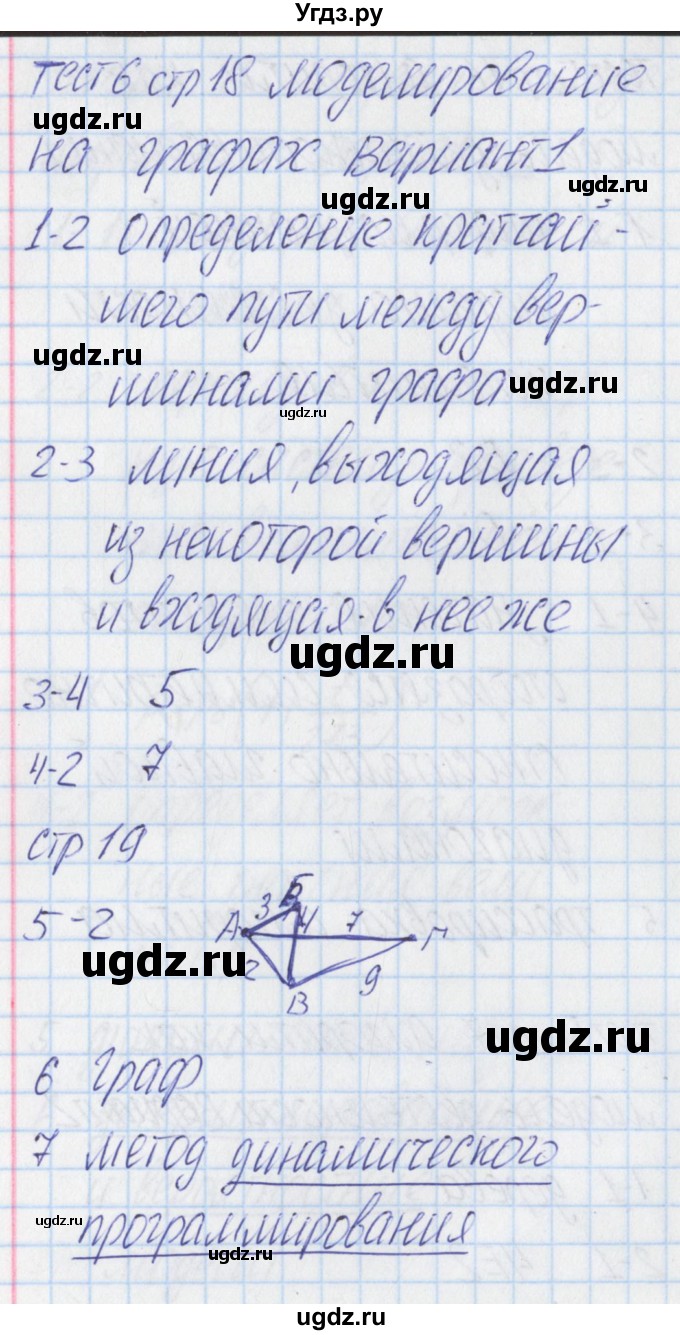 Угдз.ру
Тест 6 стр 18 Моделирование
ugdz.ru
на графах Вариант 1
ugdz.ru
ugdz.ru
1-2 Определение кратчай-
шего пути между вер-
ugdz.ru
шинами графа
ugdz.ru
ugdz.ru
2-3 линия, выходящая
из некоторой вершины
и входящая в нее же
ugdz.ru
3-4 5
4-2 7
стр 19
5-2
Б
3 4 7
А Г
2 9
В
ugdz.ru
ugdz.ru
6 Граф
7 метод динамического
ugdz.ru
программирования
ugdz.ru
ugdz.ru